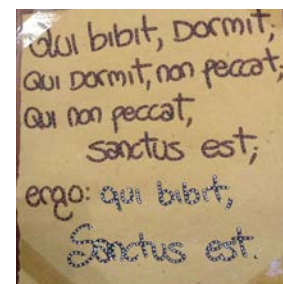 Qui bibit, Dormit;
Qui Dormit, non peccat;
Qui non peccat,
sanctus est;
ergo: qui bibit,
Sanctus est.